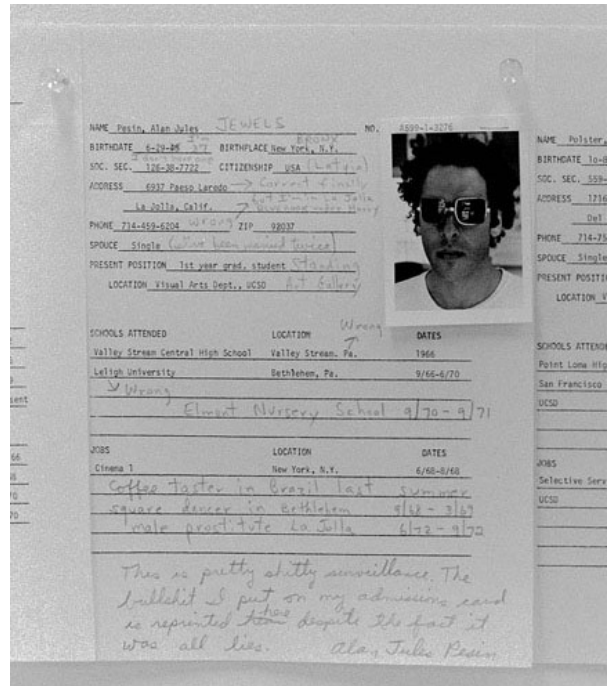 NAME Pesin, Alan Jules JEWELS NO. A699-1-3276
I'm 27 BRONX
BIRTHDATE 6-29-45 BIRTHPLACE New York, N.Y.
I don't have one
SOC. SEC. 126-38-7722 CITIZENSHIP USA (Latvia)
ADDRESS 6937 Paeso Laredo → Correct finally
but I'm in La Jolla
La Jolla, Calif.
PHONE 714-459-6204 Wrong ZIP 92037
SPOUCE Single (I've been married twice)
PRESENT POSITION 1st year grad. student Standing
LOCATION Visual Arts Dept., UCSD Art Gallery
Wrong
SCHOOLS ATTENDED LOCATION DATES
Valley Stream Central High School Valley Stream. Pa. 1966
Leligh University Bethlehem, Pa. 9/66-6/70
Wrong
Elmont Nursery School 9/70 - 9/71
JOBS LOCATION DATES
Cinema 1 New York, N.Y. 6/68-8/68
Coffee taster in Brazil last summer
square dancer in Bethlehem 9/68 - 3/69
male prostitute La Jolla 6/72 - 9/72
This is pretty shitty surveillance. The
bullshit I put on my admissions card
is reprented here despite the fact it
was all lies. Alan Jules Pesin
NAME Polster,
BIRTHDATE 10-8
SOC. SEC. 559-
ADDRESS 1716
Del
PHONE 714-75
SPOUCE Single
PRESENT POSITI
LOCATION V
SCHOOLS ATTENDE
Point Loma Hig
San Francisco
UCSD
JOBS
Selective Serv
UCSD
sent
66
70
70